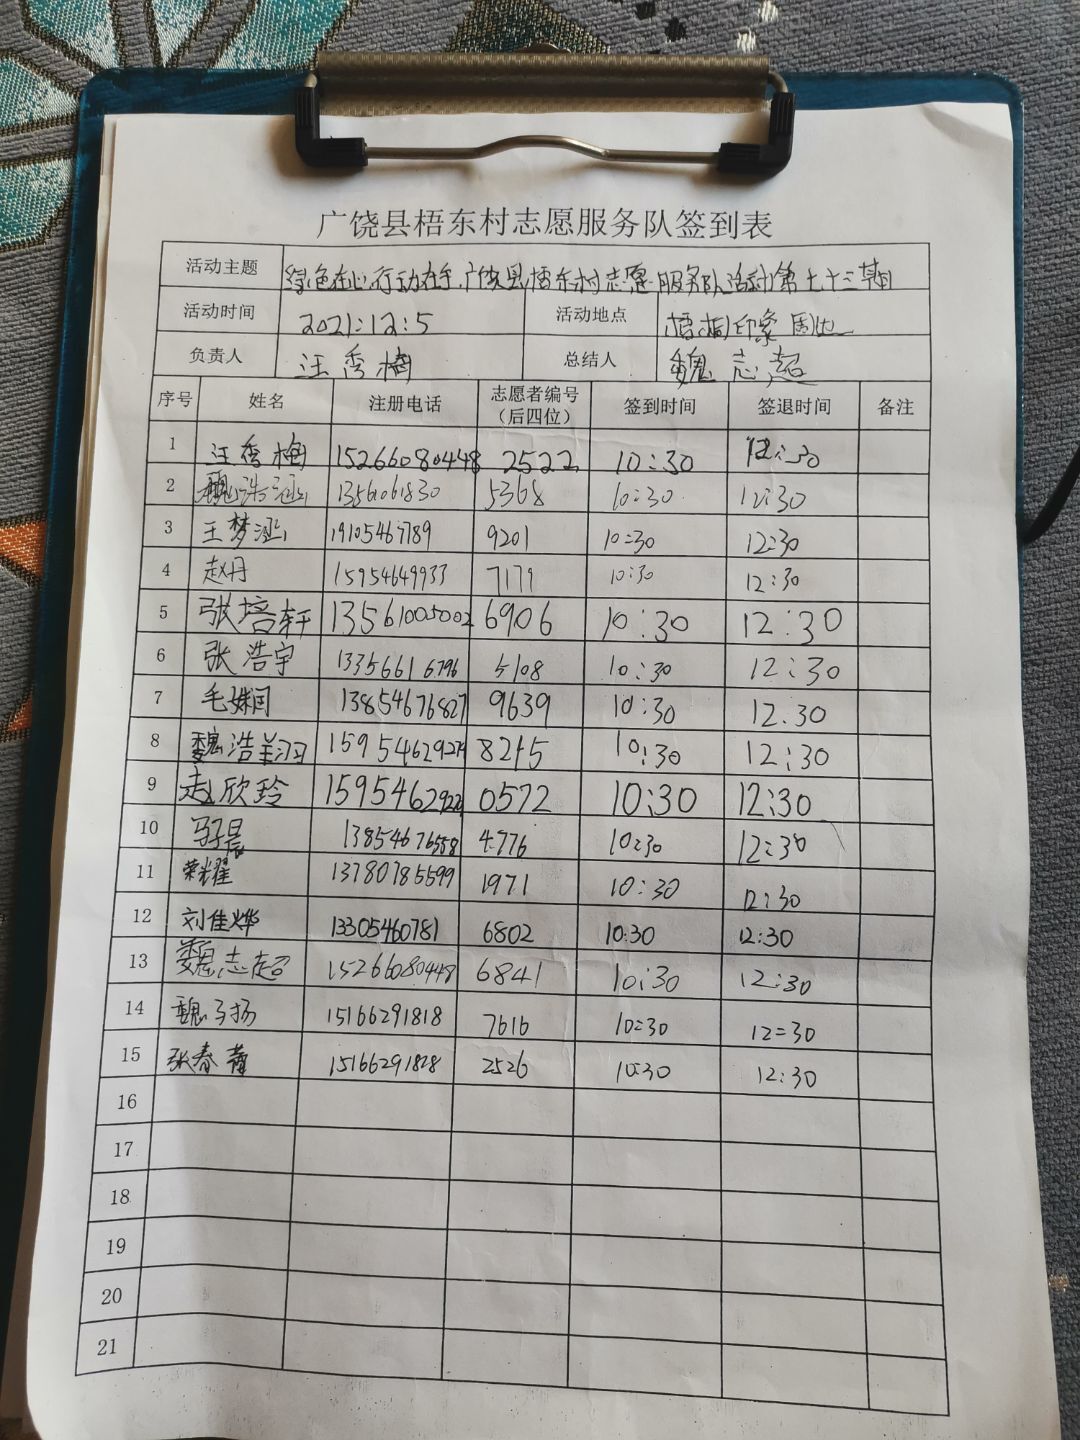 广饶县梧东村志愿服务队签到表
活动主题 绿色在心,行动在手,广饶县梧东村志愿服务队活动第七十三期
活动时间 2021:12:5 活动地点 梧桐印象周边
负责人 汪秀梅 总结人 魏志超
序号 姓名 注册电话 志愿者编号（后四位） 签到时间 签退时间 备注
1 汪秀梅 15266080448 2522 10:30 12:30
2 魏浩涵 1356061830 5368 10:30 12:30
3 王梦涵 19105467789 9201 10:30 12:30
4 赵丹 15954649933 7179 10:30 12:30
5 张培轩 13561005002 6906 10:30 12:30
6 张浩宇 13356616796 5108 10:30 12:30
7 毛姝闫 13854676827 9639 10:30 12.30
8 魏浩翔 1595462927 8215 10:30 12:30
9 赵欣玲 15954629222 0572 10:30 12:30
10 马子晨 13854676558 4776 10:30 12:30
11 荣耀 13780785599 1971 10:30 12:30
12 刘佳烨 13305460781 6802 10:30 12:30
13 魏志超 15266080448 6841 10:30 12:30
14 魏子扬 15166291818 7616 10:30 12:30
15 张春蕾 15166291828 2526 10:30 12:30
16
17
18
19
20
21